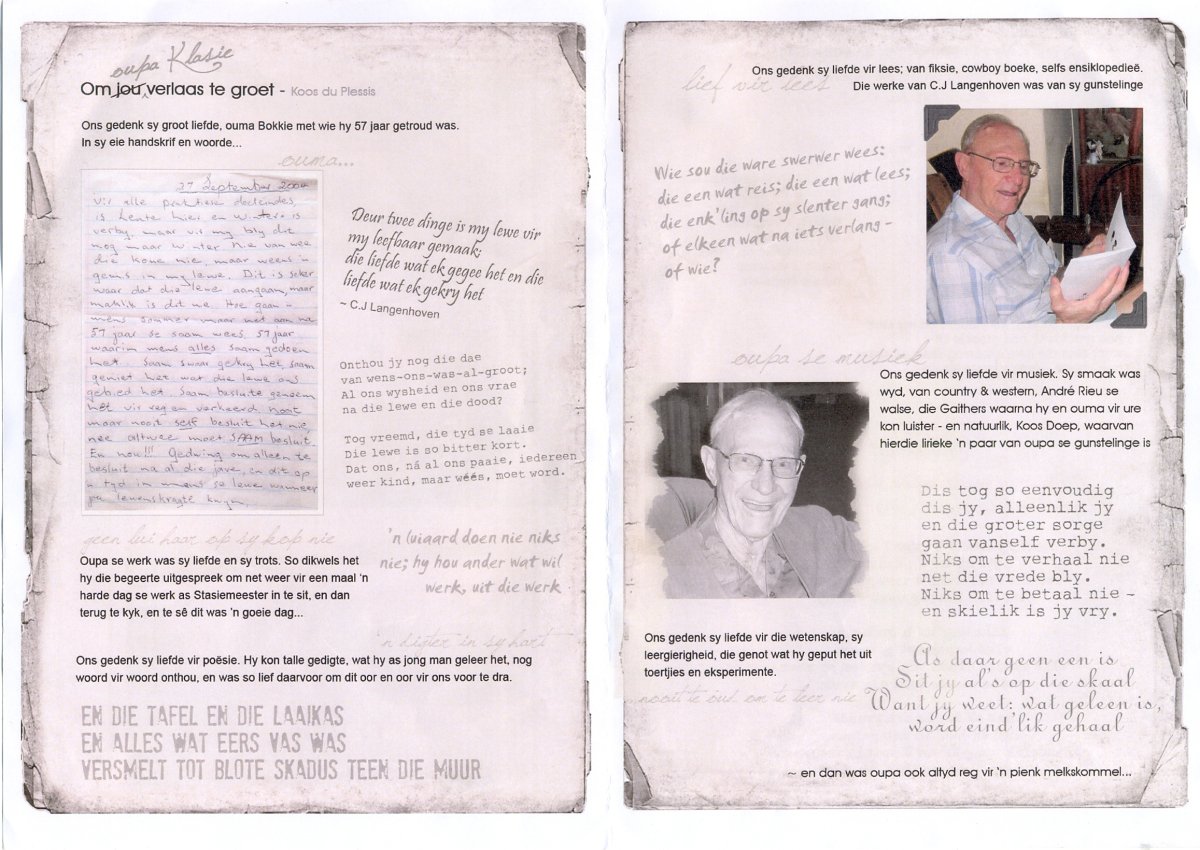 oupa Klasie
Om jou verlaas te groet - Koos du Plessis
Ons gedenk sy groot liefde, ouma Bokkie met wie hy 57 jaar getroud was.
In sy eie handskrif en woorde...
ouma...
27 September 2004
Vir alle praktiese doeleindes,
is lente hier en winter is
verby, maar vir my bly dit
nog maar winter. Nie van wee
die koue nie, maar weens 'n
gemis in my lewe. Dit is seker
waar dat die lewe aangaan, maar
maklik is dit nie. Hoe gaan 'n
mens sommer maar net aan na
57 jaar se saam wees. 57 jaar
waarin mens alles saam gedoen
het. Saam swaar gekry het, saam
geniet het wat die lewe ons
gebied het. Saam besluite geneem
het vir reg en verkeerd, nooit
maar nooit self besluit het nie
nee altwee moet SAAM besluit.
En nou!!! Gedwing om alleen te
besluit na al die jare, en dit op
'n tyd in mens se lewe wanneer
jou lewenskragte kwyn.
Deur twee dinge is my lewe vir
my leefbaar gemaak:
die liefde wat ek gegee het en die
liefde wat ek gekry het
~ C.J Langenhoven
Onthou jy nog die dae
van wens-ons-was-al-groot;
Al ons wysheid en ons vrae
na die lewe en die dood?
Tog vreemd, die tyd se laaie
Die lewe is so bitter kort.
Dat ons, ná al ons paaie, iedereen
weer kind, maar wéés, moet word.
geen lui haar op sy kop nie
Oupa se werk was sy liefde en sy trots. So dikwels het
hy die begeerte uitgespreek om net weer vir een maal 'n
harde dag se werk as Stasiemeester in te sit, en dan
terug te kyk, en te sê dit was 'n goeie dag...
'n luiaard doen nie niks
nie; hy hou ander wat wil
werk, uit die werk
'n digter in sy hart
Ons gedenk sy liefde vir poësie. Hy kon talle gedigte, wat hy as jong man geleer het, nog
woord vir woord onthou, en was so lief daarvoor om dit oor en oor vir ons voor te dra.
EN DIE TAFEL EN DIE LAAIKAS
EN ALLES WAT EERS VAS WAS
VERSMELT TOT BLOTE SKADUS TEEN DIE MUUR
lief vir lees
Ons gedenk sy liefde vir lees; van fiksie, cowboy boeke, selfs ensiklopedieë.
Die werke van C.J Langenhoven was van sy gunstelinge
Wie sou die ware swerwer wees:
die een wat reis; die een wat lees;
die enk'ling op sy slenter gang;
of elkeen wat na iets verlang -
of wie?
oupa se musiek
Ons gedenk sy liefde vir musiek. Sy smaak was
wyd, van country & western, André Rieu se
walse, die Gaithers waarna hy en ouma vir ure
kon luister - en natuurlik, Koos Doep, waarvan
hierdie lirieke 'n paar van oupa se gunstelinge is
Dis tog so eenvoudig
dis jy, alleenlik jy
en die groter sorge
gaan vanself verby.
Niks om te verhaal nie
net die vrede bly.
Niks om te betaal nie -
en skielik is jy vry.
Ons gedenk sy liefde vir die wetenskap, sy
leergierigheid, die genot wat hy geput het uit
toertjies en eksperimente.
nooit te oud om te leer nie
As daar geen een is
Sit jy al's op die skaal
Want jy weet: wat geleen is,
word eind'lik gehaal
~ en dan was oupa ook altyd reg vir 'n pienk melkskommel...